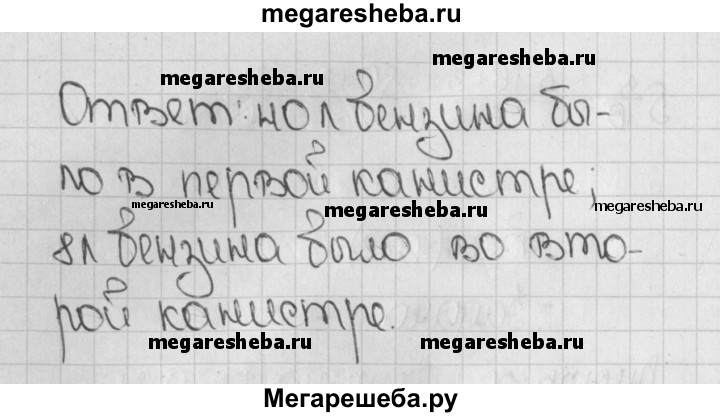 megaresheba.ru
megaresheba.ru megaresheba.ru
Ответ: 40 л бензина бы-
ло в первой канистре;
megaresheba.ru megaresheba.ru megaresheba.ru
8 л бензина было во вто-
рой канистре.
megaresheba.ru megaresheba.ru
Мегарешеба.ру